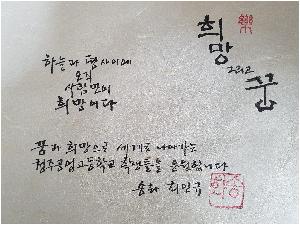 희망
그리고
꿈
하늘과 땅 사이에
오직
사람만이
희망이다
꿈과 희망으로 세계로 나아가는
청주공업고등학교 학생들을 응원합니다